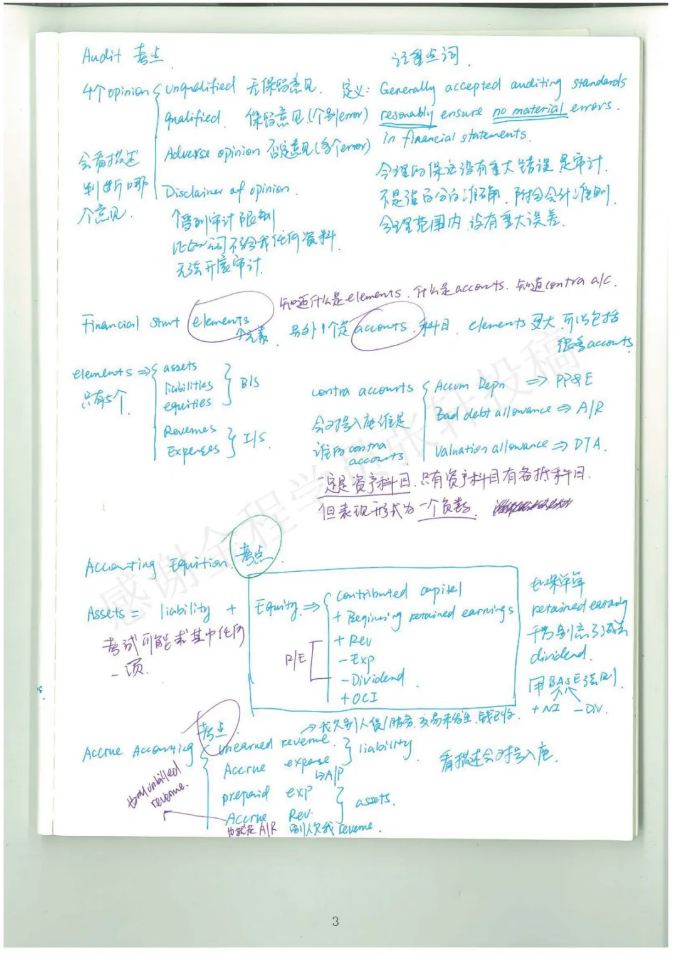 Audit 考点
注重点词
4个opinion
unqualified 无保留意见
定义: Generally accepted auditing standards
qualified. 保留意见(个别error)
resonably ensure no material errors.
Adverse opinion 否定意见(多个error)
in financial statements.
会看描述
判断哪
个意见.
Disclaimer of opinion.
合理的保证没有重大错误是审计.
不是说百分百准确, 附合会计准则
合理范围内没有重大误差.
审计限制
比如公司不给我任何资料
无法开展审计.
知道什么是elements. 什么是accounts. 知道contra a/c.
Financial stmt elements
个元素. 另外1个是accounts. 科目. elements更大, 可以包括
很多accounts
elements ⇒
只有5个.
assets
liabilities
equities
B/S
Revenues
Expenses
I/S.
contra accounts
会对号入座谁是
谁的contra
accounts.
Accum Depn ⇒ PP&E
Bad debt allowance ⇒ A/R
Valuation allowance ⇒ DTA.
一定是资产科目. 只有资产科目有备抵科目.
但表现形式为一个负数.
Accounting Equition. 考点
Assets = liability + Equity ⇒
contributed capital
+ Beginning retained earnings
+ Rev
- Exp
- Dividend
+ OCI
R/E
考试可能求其中任何
一项.
retained earning
千万别忘了减去
dividend.
用BASE法则.
+NI -DIV.
考点
Accrue Accounting
→ 我欠别人货/服务, 交易未发生, 钱已收.
Unearned revenue.
Accrue expense
→A/P
liability.
prepaid exp
Accrue Rev.
assets.
看描述会对号入座.
也叫unbilled
revenue.
也就是A/R 别人欠我revenue.
感谢金程学员张轩投稿
3